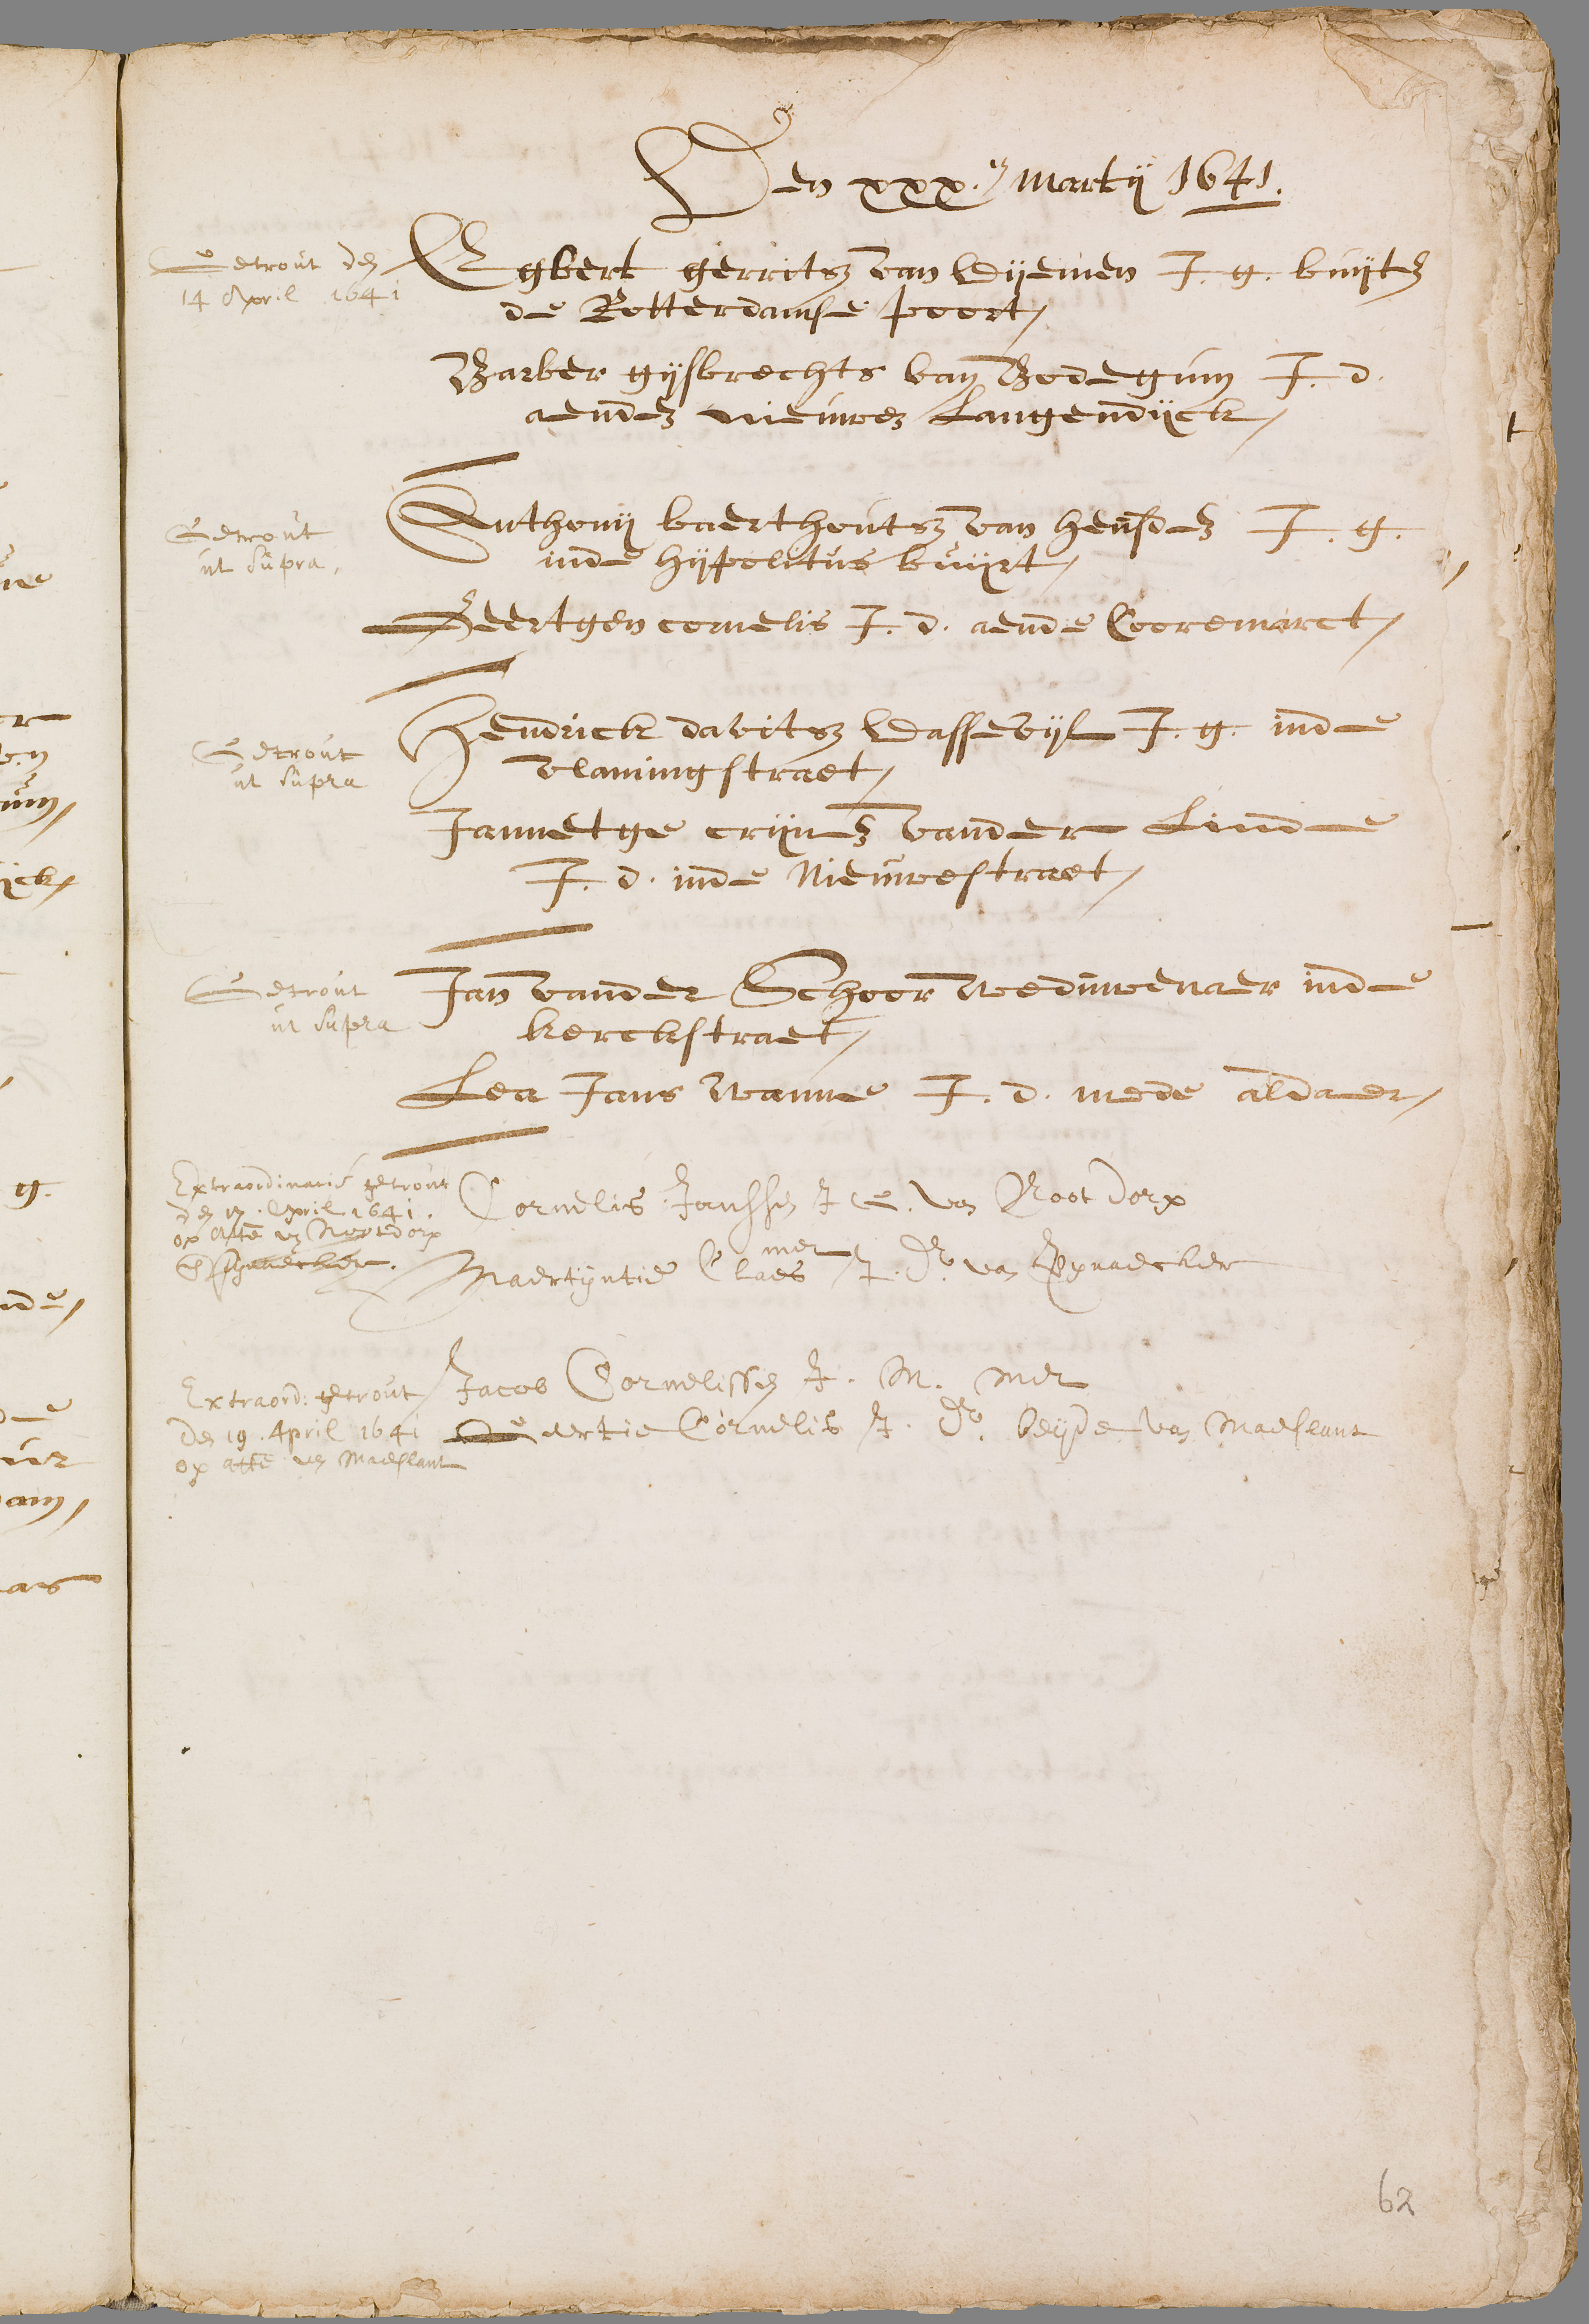 Den xxx.en Martij 1641.
Getrout den
14 April 1641
Egbert gerritsz van Dijemen J. g. buijten
de Rotterdamse poort,
Barber gijsbrechts van Bodegum J. d.
aenden nieuwen Langendijck,
Getrout
ut supra,
Anthonij baerthoutsz van heusden J. g.
inde hijpolitus buijrt,
Geertgen cornelis J. d. aende Cooremarct,
Getrout
ut supra
Hendrick davitsz Wassevijl J. g. inde
vlamingstraet,
Jannetge crijnen vander Linde
J. d. inde Nieuwestraet,
Getrout
ut supra
Jan vander Schoor weduwenaer inde
kerckstraet,
Lea Jans wanne J. d. mede aldaer,
Extraordinaris getrout
den 17. April 1641.
op atte van Nootdorp
Cornelis Janssen J G. van Nootdorp
met
Maertijntie Claes J. Dr. van Pijnacker
Extraord: getrout
den 19. April 1641
op atte van Maeslant
Jacob Cornelissen J. M. met
Cornelis J. Dr. beijde van Maeslant
62